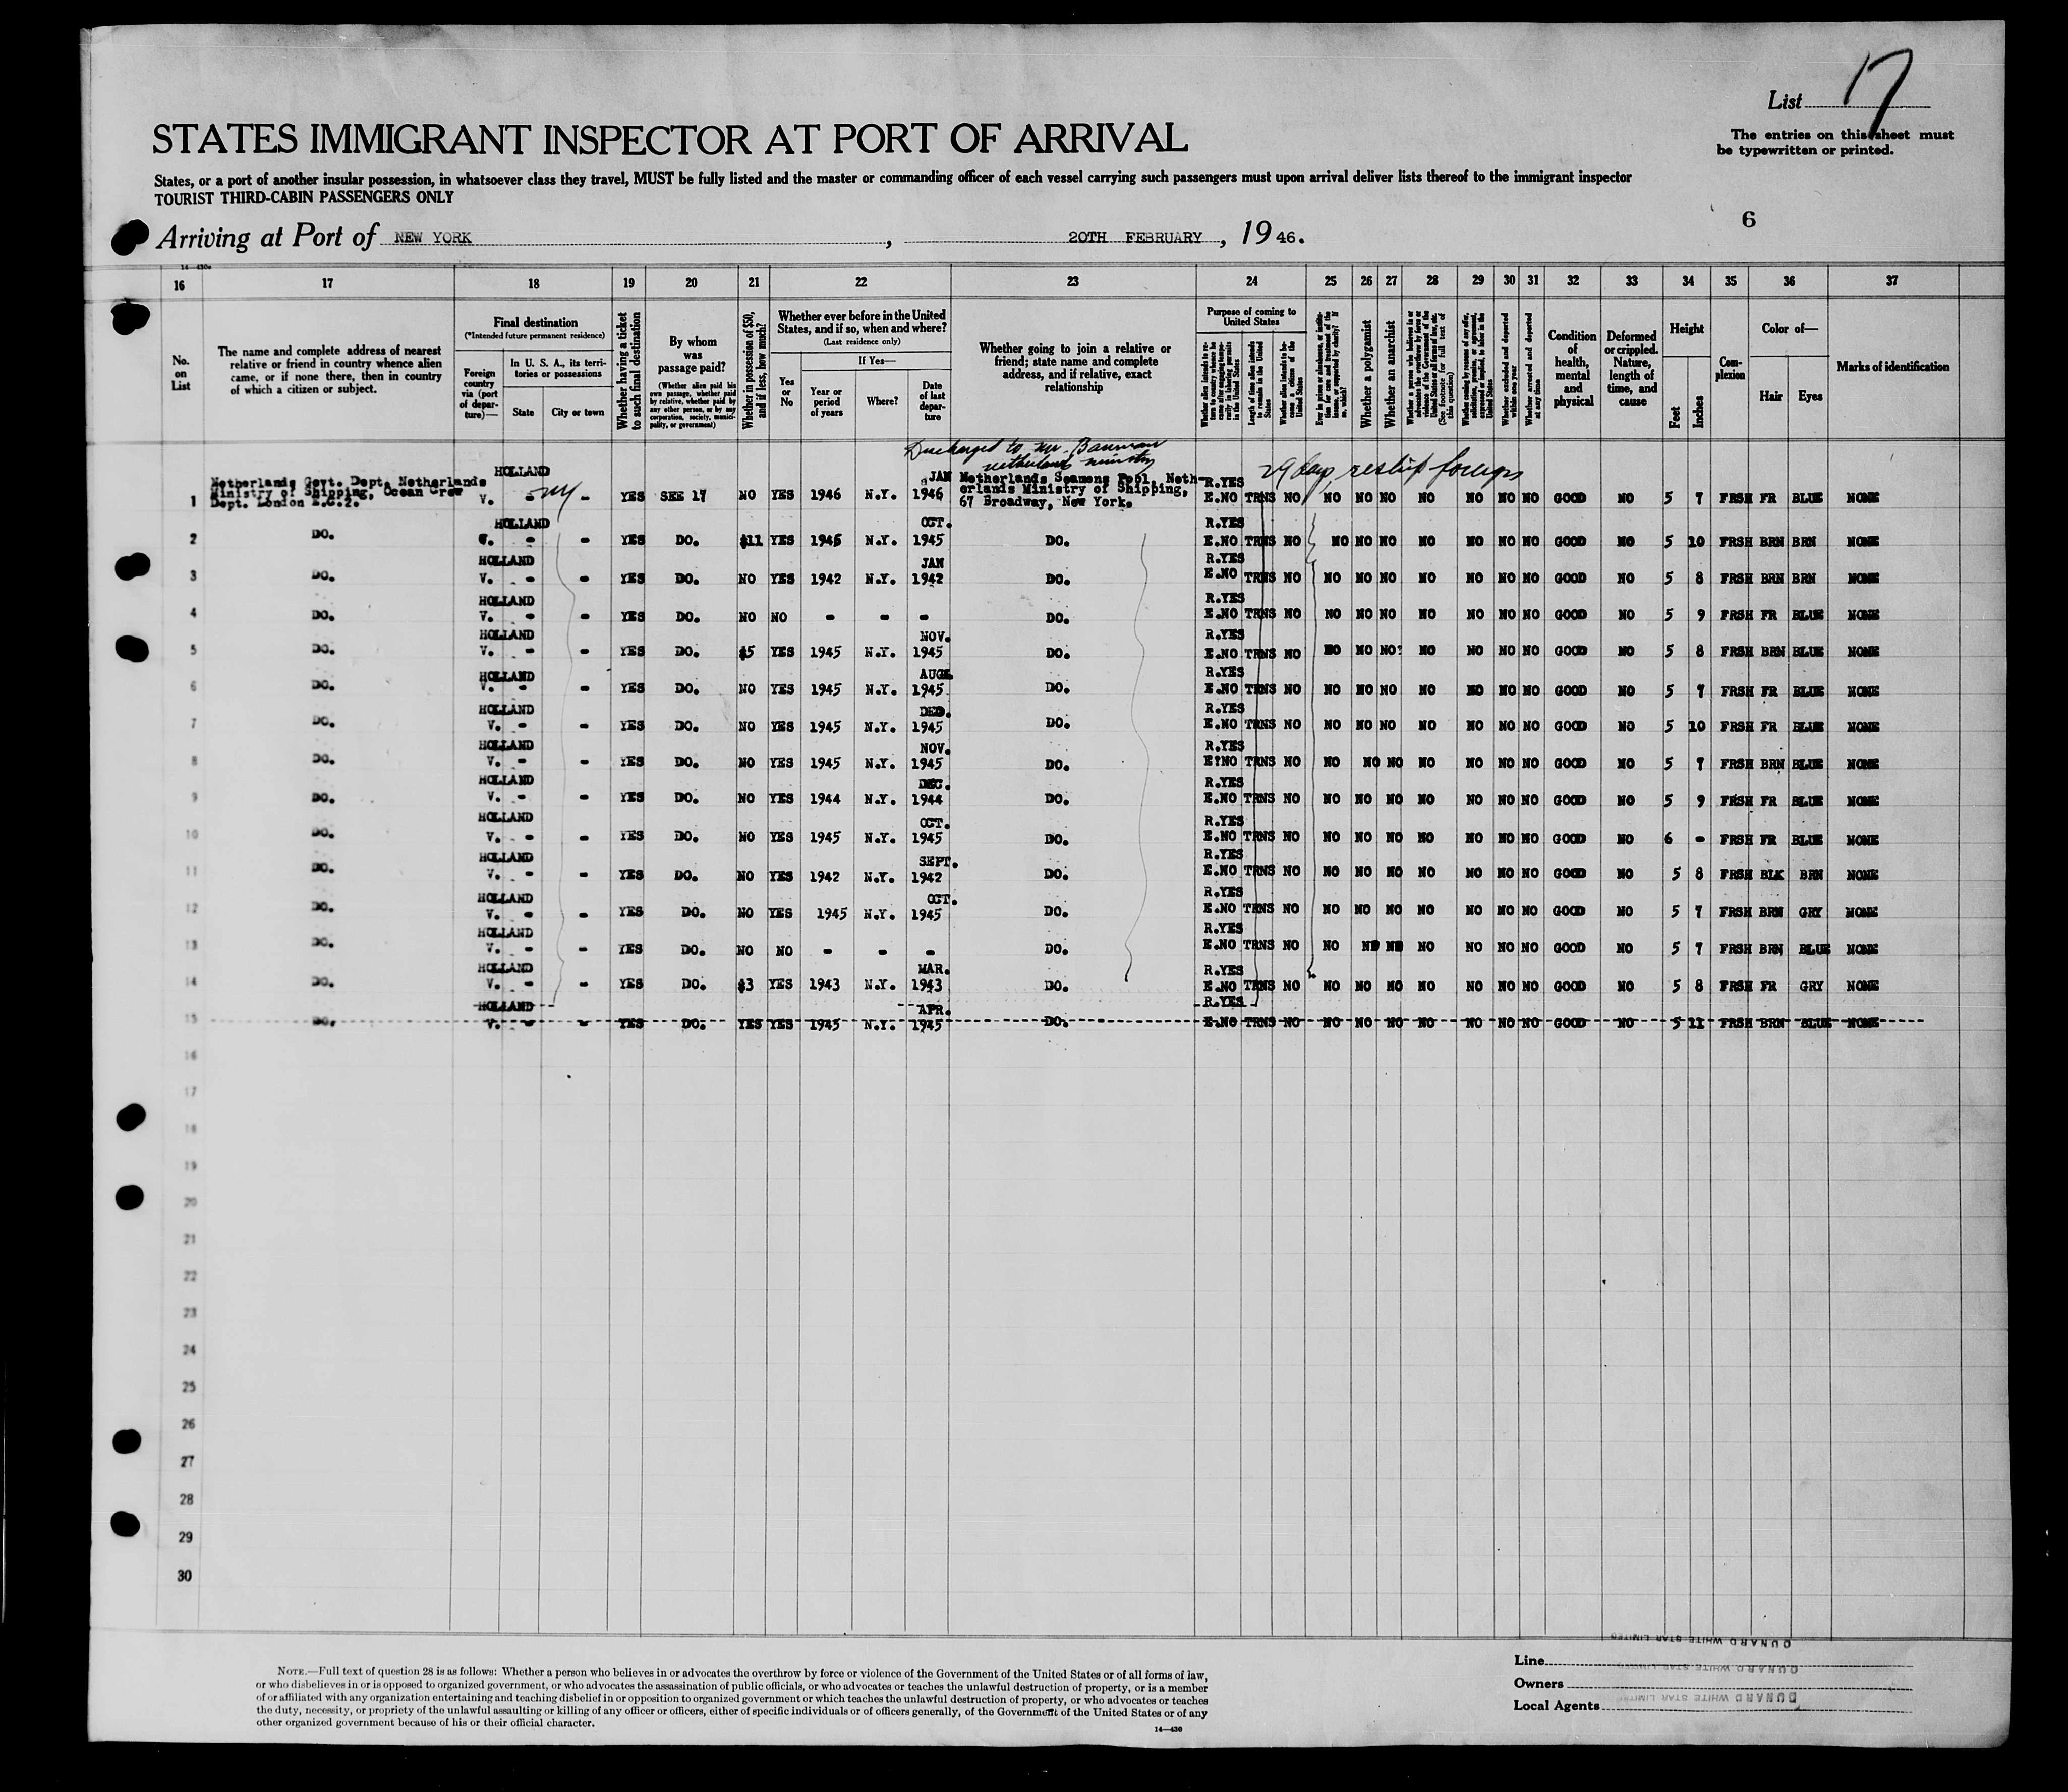 List 17
The entries on this sheet must
be typewritten or printed.
STATES IMMIGRANT INSPECTOR AT PORT OF ARRIVAL
States, or a port of another insular possession, in whatsoever class they travel, MUST be fully listed and the master or commanding officer of each vessel carrying such passengers must upon arrival deliver lists thereof to the immigrant inspector
TOURIST THIRD-CABIN PASSENGERS ONLY
6
Arriving at Port of NEW YORK, 20TH FEBRUARY, 1946.
16 17 18 19 20 21 22 23 24 25 26 27 28 29 30 31 32 33 34 35 36 37
No. on List
The name and complete address of nearest relative or friend in country whence alien came, or if none there, then in country of which a citizen or subject.
Final destination
(*Intended future permanent residence)
Foreign country via (port of departure)—
In U. S. A., its territories or possessions
State City or town
Whether having a ticket to such final destination
By whom was passage paid?
(Whether alien paid his own passage, whether paid by relative, whether paid by any other person, or by any corporation, society, municipality, or government)
Whether in possession of $50, and if less, how much?
Whether ever before in the United States, and if so, when and where?
(Last residence only)
Yes or No
If Yes—
Year or period of years
Where?
Date of last departure
Whether going to join a relative or friend; state name and complete address, and if relative, exact relationship
Purpose of coming to United States
Whether a polygamist
Whether an anarchist
Whether excluded and deported within one year
Whether arrested and deported at any time
Condition of health, mental and physical
Deformed or crippled. Nature, length of time, and cause
Height
Feet Inches
Complexion
Color of—
Hair Eyes
Marks of identification
Discharged to Mr. Bauman
netherlands ministry
29 days, reship foreign
1 Netherlands Govt. Dept. Netherlands Ministry of Shipping, Ocean Crew Dept. London E.C.2. HOLLAND V. - NY - YES SEE 17 NO YES 1946 N.Y. JAN 1946 Netherlands Seamens Pool, Netherlands Ministry of Shipping, 67 Broadway, New York. R.YES E.NO TRNS NO NO NO NO NO NO NO NO GOOD NO 5 7 FRSH FR BLUE NONE
2 DO. HOLLAND - - YES DO. $11 YES 1945 N.Y. OCT. 1945 DO. R.YES E.NO TRNS NO NO NO NO NO NO NO NO GOOD NO 5 10 FRSH BRN BRN NONE
3 DO. HOLLAND V. - - YES DO. NO YES 1942 N.Y. JAN 1942 DO. R.YES E.NO TRNS NO NO NO NO NO NO NO NO GOOD NO 5 8 FRSH BRN BRN NONE
4 DO. HOLLAND V. - - YES DO. NO NO - - - DO. R.YES E.NO TRNS NO NO NO NO NO NO NO NO GOOD NO 5 9 FRSH FR BLUE NONE
5 DO. HOLLAND V. - - YES DO. $5 YES 1945 N.Y. NOV. 1945 DO. R.YES E.NO TRNS NO NO NO NO? NO NO NO NO GOOD NO 5 8 FRSH BRN BLUE NONE
6 DO. HOLLAND V. - - YES DO. NO YES 1945 N.Y. AUG. 1945 DO. R.YES E.NO TRNS NO NO NO NO NO NO NO NO GOOD NO 5 7 FRSH FR BLUE NONE
7 DO. HOLLAND V. - - YES DO. NO YES 1945 N.Y. 1945 DO. R.YES E.NO TRNS NO NO NO NO NO NO NO NO GOOD NO 5 10 FRSH FR BLUE NONE
8 DO. HOLLAND V. - - YES DO. NO YES 1945 N.Y. NOV. 1945 DO. R.YES E?NO TRNS NO NO NO NO NO NO NO NO GOOD NO 5 7 FRSH BRN BLUE NONE
9 DO. HOLLAND V. - - YES DO. NO YES 1944 N.Y. DEC. 1944 DO. R.YES E.NO TRNS NO NO NO NO NO NO NO NO GOOD NO 5 9 FRSH FR BLUE NONE
10 DO. HOLLAND V. - - YES DO. NO YES 1945 N.Y. OCT. 1945 DO. R.YES E.NO TRNS NO NO NO NO NO NO NO NO GOOD NO 6 - FRSH FR BLUE NONE
11 DO. HOLLAND V. - - YES DO. NO YES 1942 N.Y. SEPT. 1942 DO. R.YES E.NO TRNS NO NO NO NO NO NO NO NO GOOD NO 5 8 FRSH BLK BRN NONE
12 DO. HOLLAND V. - - YES DO. NO YES 1945 N.Y. OCT. 1945 DO. R.YES E.NO TRNS NO NO NO NO NO NO NO NO GOOD NO 5 7 FRSH BRN GRY NONE
13 DO. HOLLAND V. - - YES DO. NO NO - - - DO. R.YES E.NO TRNS NO NO NO NO NO NO NO NO GOOD NO 5 7 FRSH BRN BLUE NONE
14 DO. HOLLAND V. - - YES DO. $3 YES 1943 N.Y. MAR. 1943 DO. R.YES E.NO TRNS NO NO NO NO NO NO NO NO GOOD NO 5 8 FRSH FR GRY NONE
15 DO. HOLLAND V. - - YES DO. YES YES 1945 N.Y. APR. 1945 DO. R.YES E.NO TRNS NO NO NO NO NO NO NO NO GOOD NO 5 11 FRSH BRN BLUE NONE
16
17
18
19
20
21
22
23
24
25
26
27
28
29
30
NOTE.—Full text of question 28 is as follows: Whether a person who believes in or advocates the overthrow by force or violence of the Government of the United States or of all forms of law,
or who disbelieves in or is opposed to organized government, or who advocates the assassination of public officials, or who advocates or teaches the unlawful destruction of property, or is a member
of or affiliated with any organization entertaining and teaching disbelief in or opposition to organized government or which teaches the unlawful destruction of property, or who advocates or teaches
the duty, necessity, or propriety of the unlawful assaulting or killing of any officer or officers, either of specific individuals or of officers generally, of the Government of the United States or of any
other organized government because of his or their official character.
14—430
CUNARD WHITE STAR LIMITED
Line CUNARD WHITE STAR LIMITED
Owners
Local Agents CUNARD WHITE STAR LIMITED